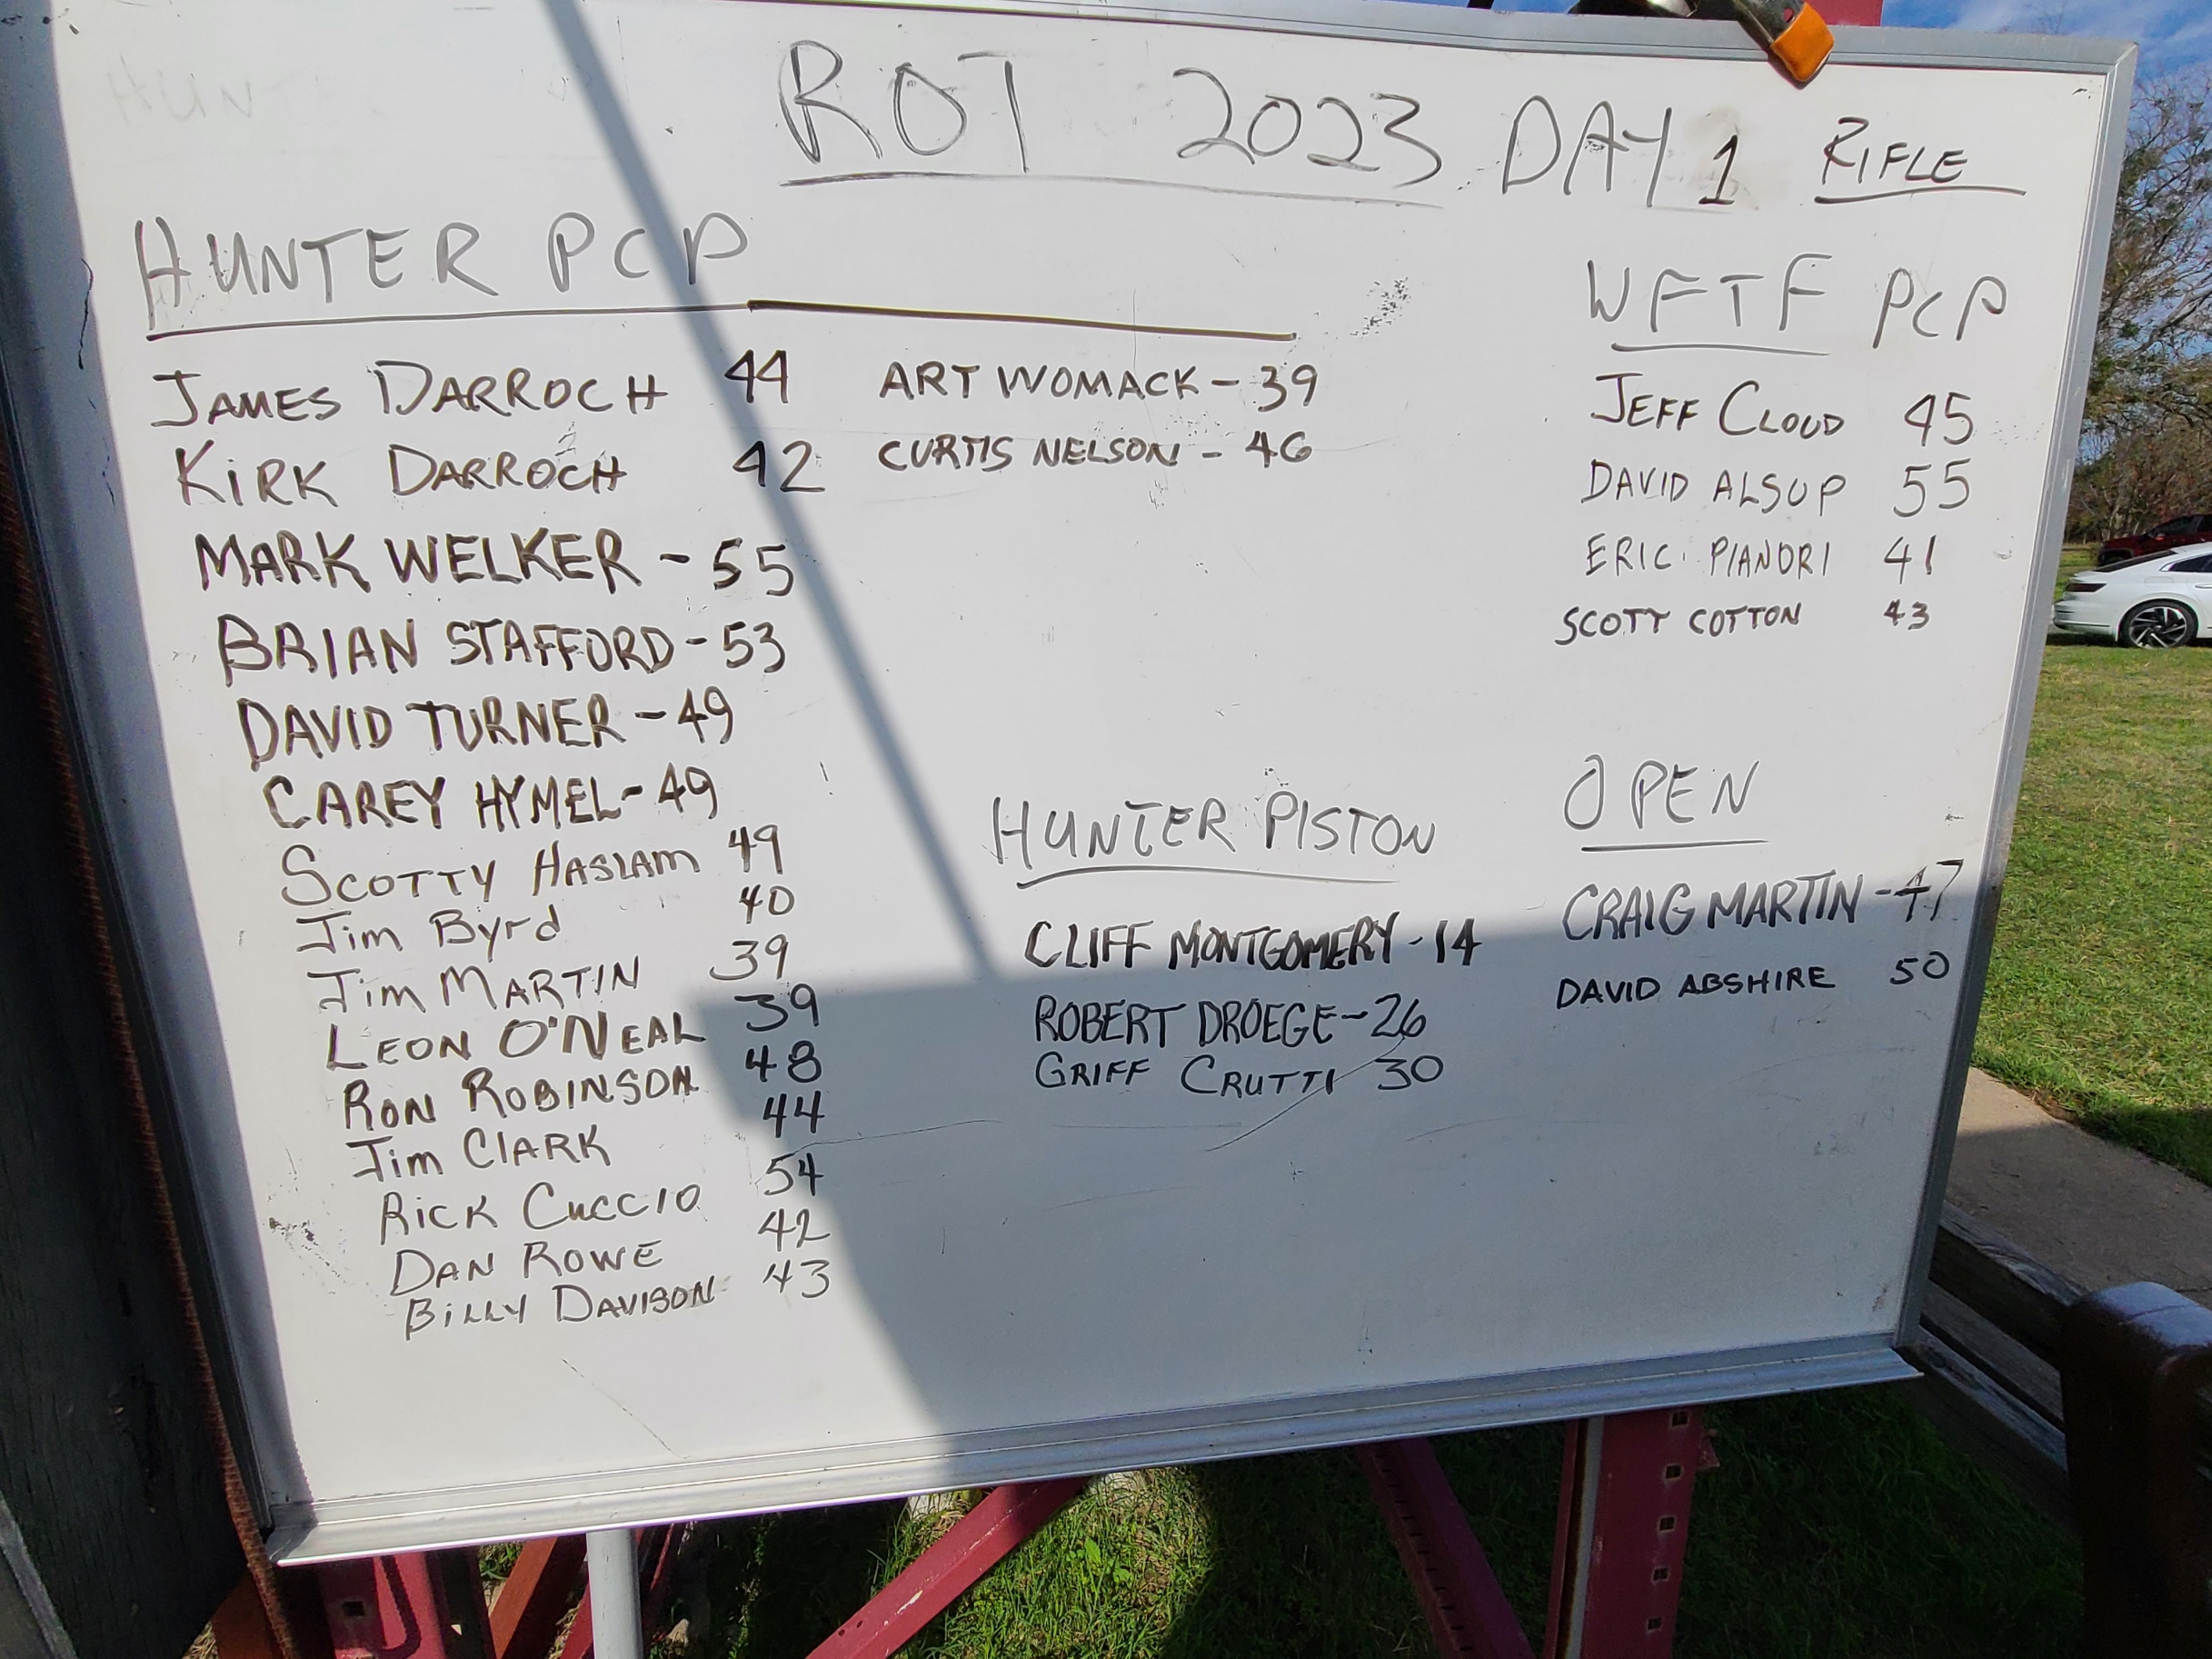 ROT 2023 DAY 1 RIFLE
HUNTER PCP
JAMES DARROCH 44
KIRK DARROCH 42
MARK WELKER - 55
BRIAN STAFFORD - 53
DAVID TURNER - 49
CAREY HYMEL - 49
SCOTTY HASLAM 49
Jim Byrd 40
Jim MARTIN 39
LEON O'NEAL 39
RON ROBINSON 48
Jim CLARK 44
RICK CUCCIO 54
DAN ROWE 42
BILLY DAVISON 43
ART WOMACK - 39
CURTIS NELSON - 46
WFTF PCP
JEFF CLOUD 45
DAVID ALSUP 55
ERIC PIANORI 41
SCOTT COTTON 43
HUNTER PISTON
CLIFF MONTGOMERY - 14
ROBERT DROEGE - 26
GRIFF CRUTTI 30
OPEN
CRAIG MARTIN - 47
DAVID ABSHIRE 50